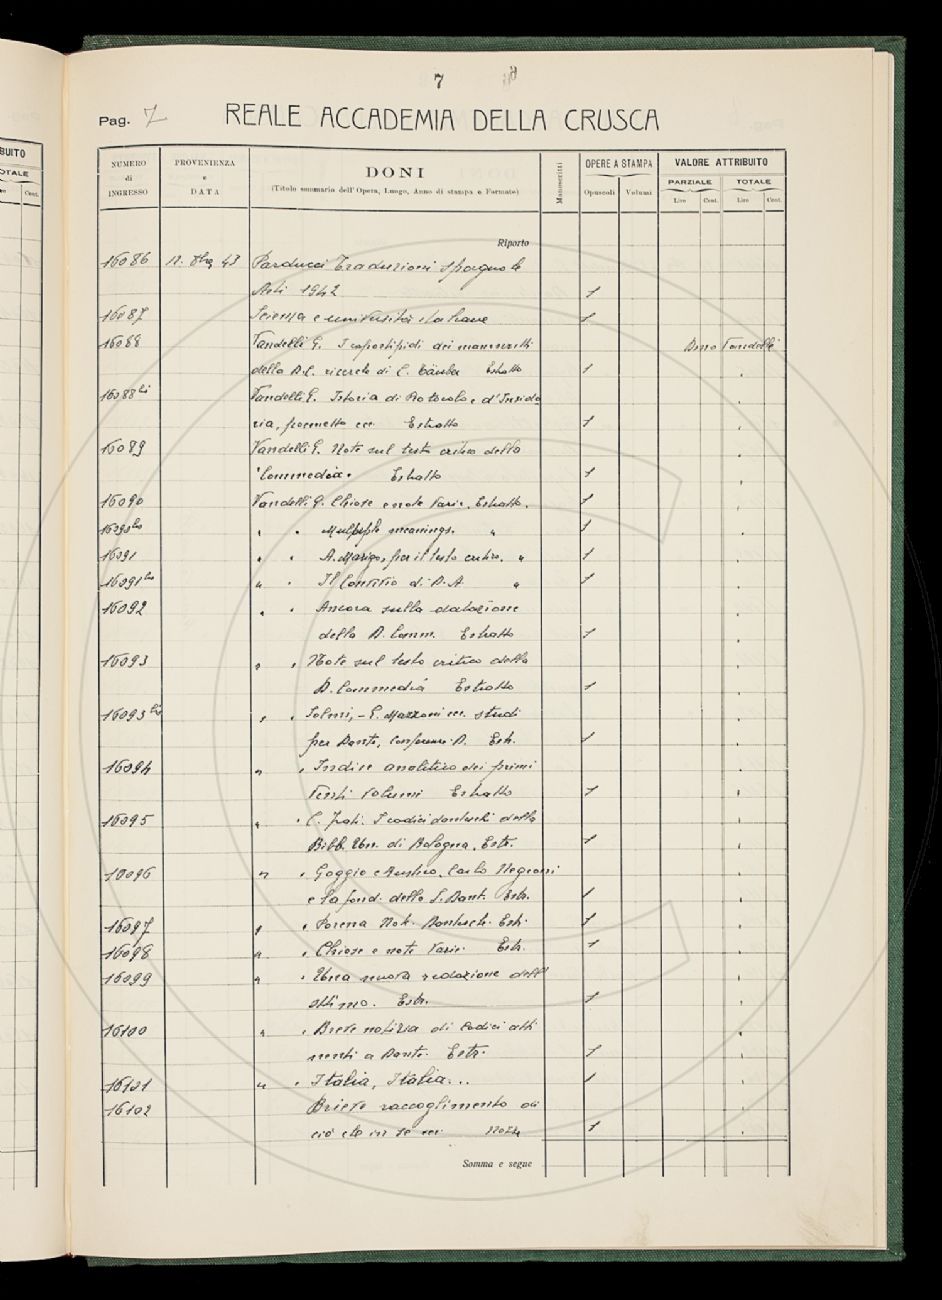 7
Pag. 7 REALE ACCADEMIA DELLA CRUSCA
BUITO
TOTALE
Cent.
NUMERO di INGRESSO
PROVENIENZA e DATA
DONI
(Titolo sommario dell'Opera, Luogo, Anno di stampa e Formato)
Manoscritti
OPERE A STAMPA
Opuscoli Volumi
VALORE ATTRIBUITO
PARZIALE TOTALE
Lire Cent. Lire Cent.
Riporto
16086 12. 43 Parducci Traduzioni Spagnole
Asti 1942 1
16087 Scienza e università italiane 1
16088 Vandelli G. I capostipidi dei manoscritti Vandelli
della D.C. ricerche di C. Täuber Estratto 1
16088 bis Vandelli G. Istoria di Patroclo e d'Insido
ria, poemetto ecc. Estratto 1
16089 Vandelli G. Note sul testo critico della
"Commedia" Estratto 1
16090 Vandelli G. Chiose e note varie. Estratto. 1
16090 bis " " Multiple meanings. " 1
16091 " " A. Marigo, per il testo critico. " 1
16091 bis " " Il Convivio di D.A. " 1
16092 " " Ancora sulla datazione
della D. Comm. Estratto 1
16093 " " Note sul testo critico della
D. Commedia Estratto 1
16093 bis " " Solmi, - G. Mazzoni ecc. studi
per Dante, Conferenze D. Estr. 1
16094 " " Indice analitico dei primi
venti volumi Estratto 1
16095 " " C. Frati. I codici danteschi della
Bibl. Un. di Bologna. Estr. 1
16096 " " Goggio Carlo Negroni
e la fond. della S. Dant. Estr. 1
16097 " " Porena Not. Dantesch. Estr. 1
16098 " " Chiose e note varie. Estr. 1
16099 " " Una nuova redazione dell'
ottimo. Estr. 1
16100 " " Breve notizia di Codici atti
nenti a Dante. Estr. 1
16101 " " Italia, Italia... 1
16102 Brieve raccoglimento di
ciò che in se 1
Somma e segue